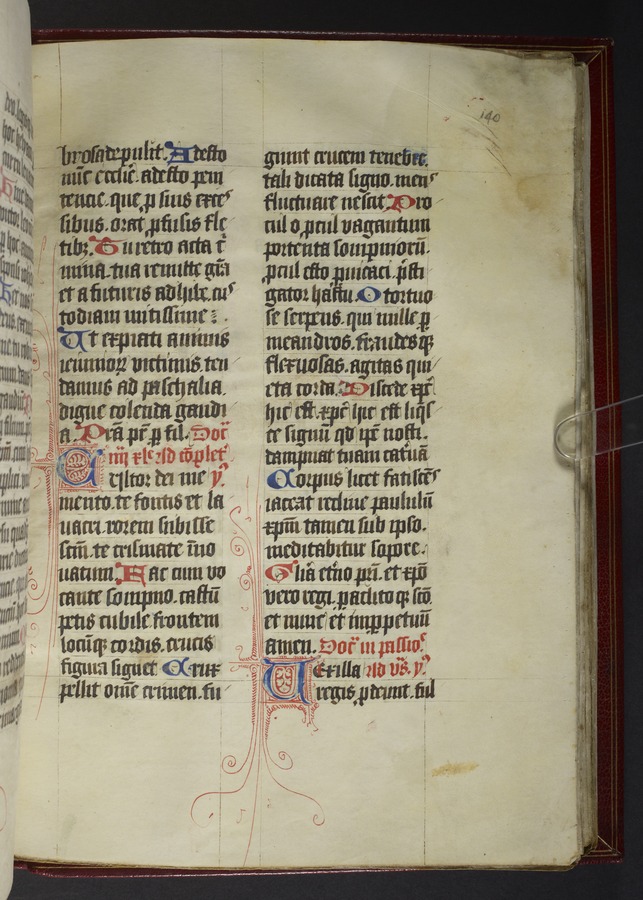 140
brosa depulit. Adesto
nu̅c ecclie̅. adesto pe̅ni
tencie. que p suis exces
sibus. orat p̱fusis fle
tibꝫ. Tu retro acta c̅
mina. tua remitte gr̅a
et a futuris adhibe. cus
todiam mitissime.
Ut expiati annuis
ieiuniorꝝ victimis. ten
damus ad paschalia.
digne colenda gaudi
a. Pr̅a pr̅ ꝑ fil. Doc̅
iiij xl̅e ad co̅plet̅
Cultor dei me y̅
mento. te fontis et la
uacri. rorem subisse
sc̅m. te crismate i̅no
uatum. Fac cum vo
cante sompno. castu̅
petis cubile. frontem
locu̅qꝫ cordis. crucis
figura signet. Crux
pellit om̅e crimen. fu
giunt crucem tenebre.
tali dicata signo. mens
fluctuare nescit. Pro
cul o p̱cul vagantum
portenta sompnioru̅.
p̱cul esto p̱uicaci. p̅sti
gator hastu. O tortuo
se serpens. qui mille ꝑ
meandros. fraudesqꝫ
flexuosas. agitas qui
eta corda. Discede xp̅c
hic est. xp̅c hic est liqs
ce signu̅ qd̅ ip̅e nosti.
dampnat tuam cat̅ua̅
Corpus licet fatisce̅s
iaceat recline paululu̅
xp̅m tamen sub ipso.
meditabitur sopore.
Gl̅ia et̅no pr̅i. et xp̅o
vero regi. paclitoqꝫ sc̅o
et nunc et inꝑpetuu̅
amen. Doc̅ in passio̅
Uexilla ad vs̅. y̅
regis ꝓdeunt. ful